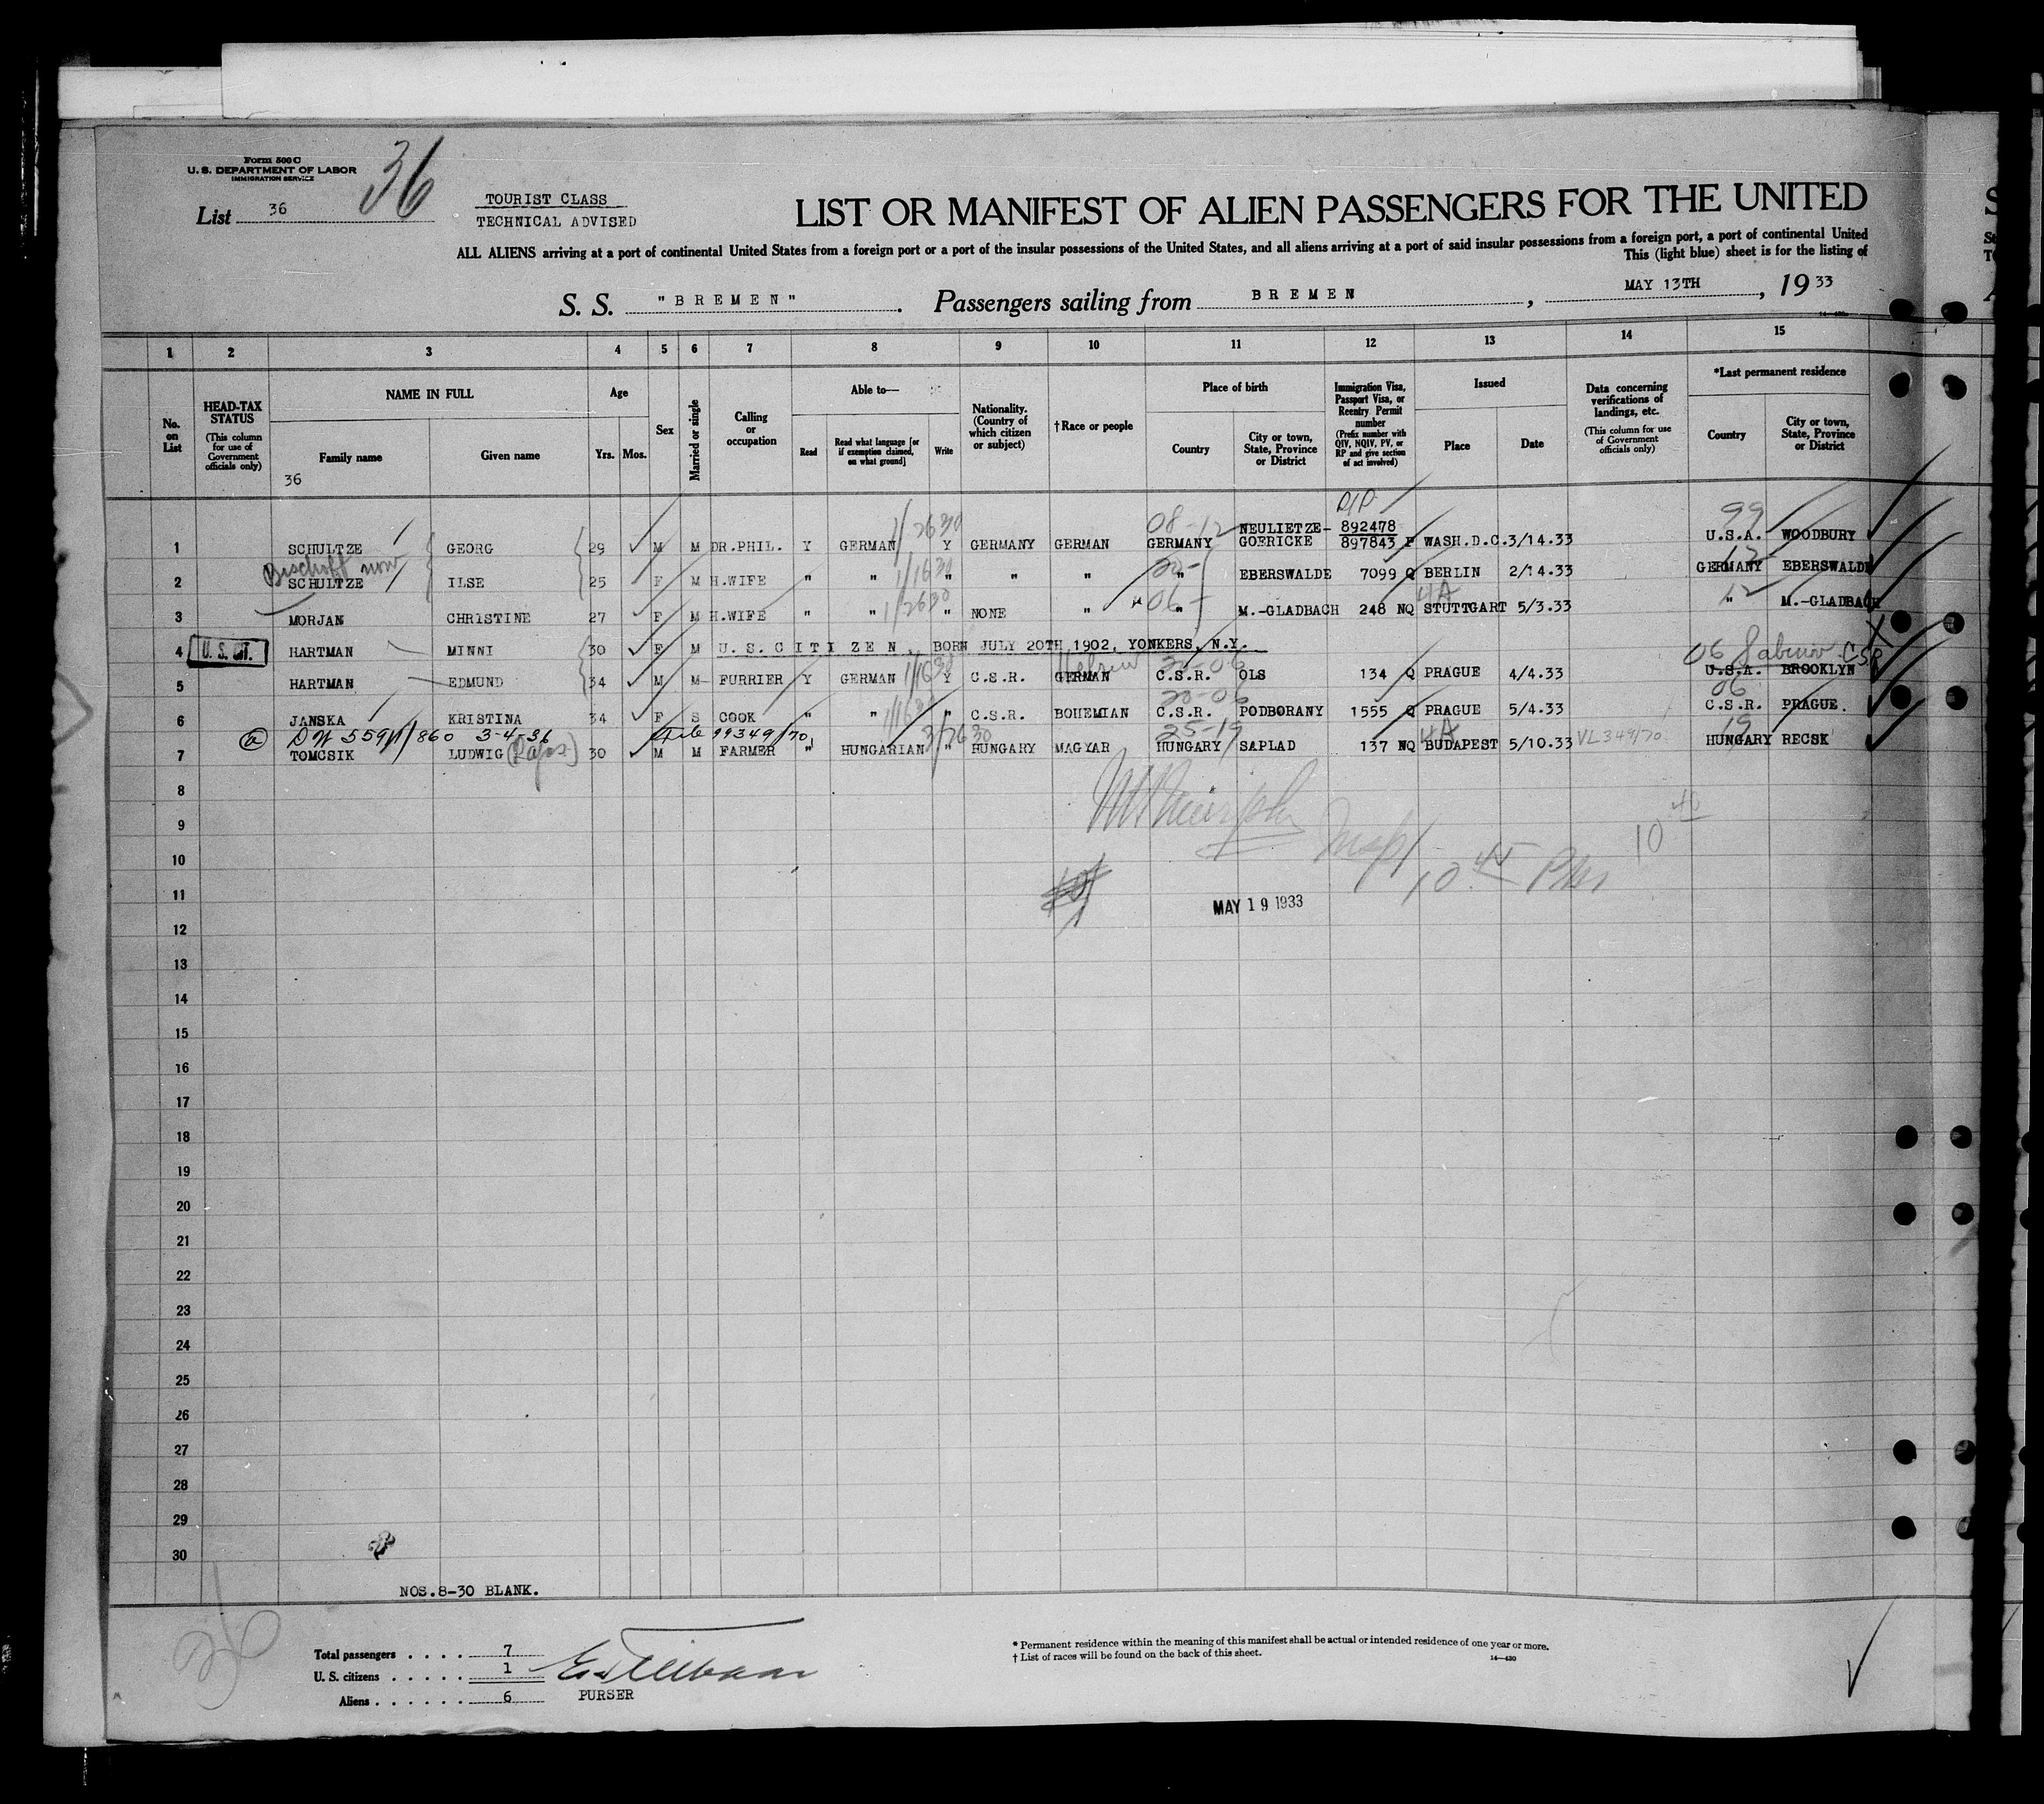 Form 500 C
U. S. DEPARTMENT OF LABOR
IMMIGRATION SERVICE
36
List 36
TOURIST CLASS
TECHNICAL ADVISED
LIST OR MANIFEST OF ALIEN PASSENGERS FOR THE UNITED
ALL ALIENS arriving at a port of continental United States from a foreign port or a port of the insular possessions of the United States, and all aliens arriving at a port of said insular possessions from a foreign port, a port of continental United
This (light blue) sheet is for the listing of
S. S. "BREMEN". Passengers sailing from BREMEN, MAY 13TH, 19 33
1 2 3 4 5 6 7 8 9 10 11 12 13 14 15
No. on List
HEAD-TAX STATUS (This column for use of Government officials only)
NAME IN FULL
Family name
Given name
36
Age
Yrs. Mos.
Sex
Married or single
Calling or occupation
Able to—
Read
Read what language [or if exemption claimed, on what ground]
Write
Nationality. (Country of which citizen or subject)
†Race or people
Place of birth
Country
City or town, State, Province or District
Immigration Visa, Passport Visa, or Reentry Permit number (Prefix number with QIV, NQIV, PV, or RP and give section of act involved)
Issued
Place
Date
Data concerning verifications of landings, etc. (This column for use of Government officials only)
*Last permanent residence
Country
City or town, State, Province or District
R/P
08-12 NEULIETZE- 892478 99
1 SCHULTZE GEORG 29 M M DR.PHIL. Y GERMAN Y GERMANY GERMAN GERMANY GOERICKE 897843 P WASH.D.C. 3/14.33 U.S.A. WOODBURY
Bischoff now
2 SCHULTZE ILSE 25 F M H.WIFE " " " " " " EBERSWALDE 7099 Q BERLIN 2/14.33 GERMANY EBERSWALDE
3 MORJAN CHRISTINE 27 F M H.WIFE " " " NONE " " M.-GLADBACH 248 NQ STUTTGART 5/3.33 " M.-GLADBACH
4 U. S. CIT. HARTMAN MINNI 30 F M U.S.CITIZEN, BORN JULY 20TH 1902, YONKERS, N.Y.
Hebrew 06 Sabinov C.S.R.
5 HARTMAN EDMUND 34 M M FURRIER Y GERMAN Y C.S.R. GERMAN C.S.R. OLS 134 Q PRAGUE 4/4.33 U.S.A. BROOKLYN
20-06 06
6 JANSKA KRISTINA 34 F S COOK " " " C.S.R. BOHEMIAN C.S.R. PODBORANY 1555 Q PRAGUE 5/4.33 C.S.R. PRAGUE.
3-4-36 File 99349/70 25-19 4A VL 349/70 19
7 TOMCSIK LUDWIG (Lajos) 30 M M FARMER " HUNGARIAN " HUNGARY MAGYAR HUNGARY SAPLAD 137 NQ BUDAPEST 5/10.33 HUNGARY RECSK
8
9
Insp
10 45 Pm
10 40
10
11
MAY 19 1933
12
13
14
15
16
17
18
19
20
21
22
23
24
25
26
27
28
29
30
NOS.8-30 BLANK.
36
Total passengers . . . . . 7
U. S. citizens . . . . . 1
Aliens . . . . . . 6
PURSER
* Permanent residence within the meaning of this manifest shall be actual or intended residence of one year or more.
† List of races will be found on the back of this sheet.
14—430